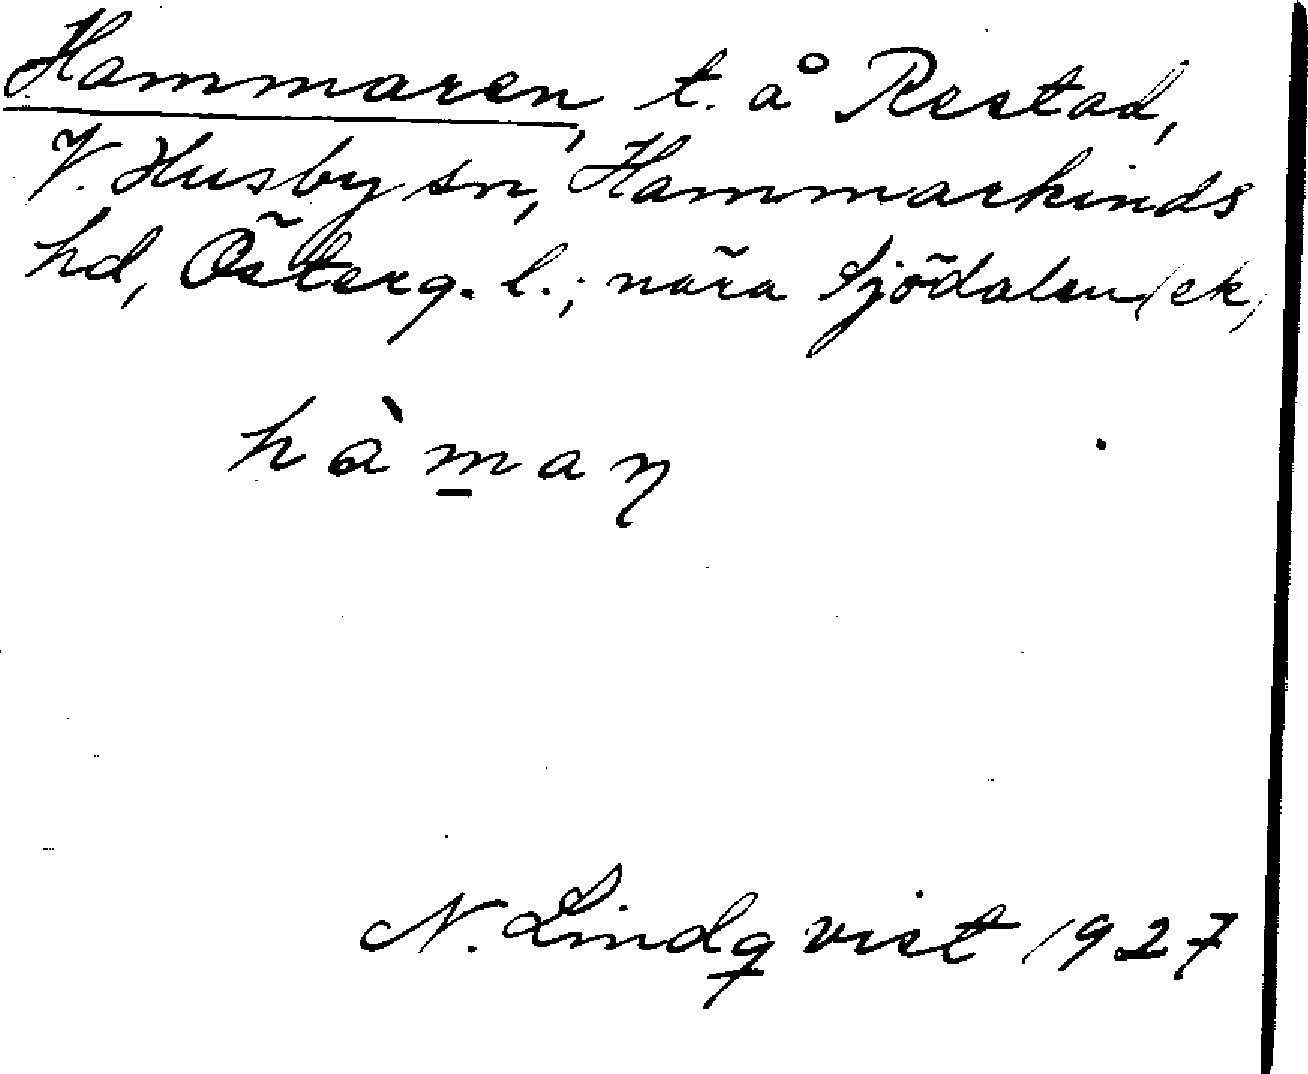 Hammaren, t. å Restad,
V. Husby sn, Hammarkinds
hd, Österg. l.; nära Sjödalen (ek)
hàm̲aŋ
N. Lindqvist 1927